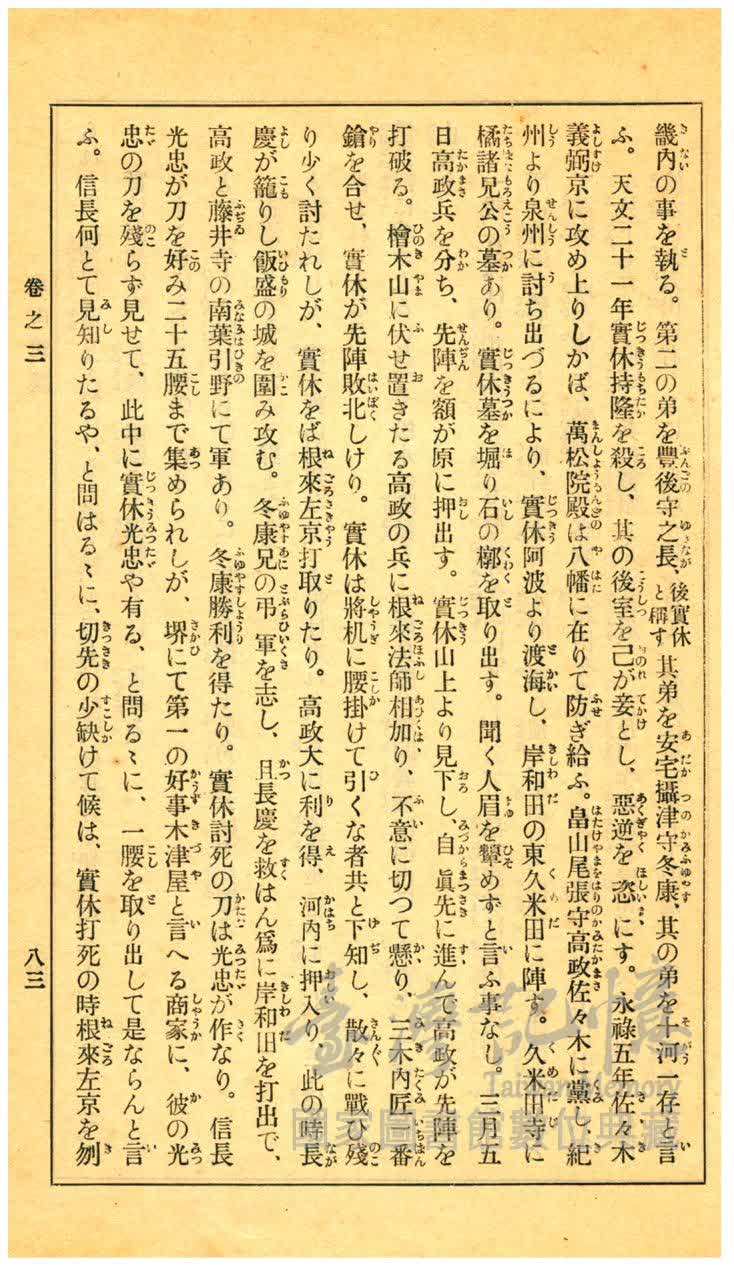 畿内の事を執る。第二の弟を豐後守之長、後實休と稱す其弟を安宅攝津守冬康、其の弟を十河一存と言
ふ。天文二十一年實休持隆を殺し、其の後室を己が妾とし、惡逆を恣にす。永祿五年佐々木
義弼京に攻め上りしかば、萬松院殿は八幡に在りて防ぎ給ふ。畠山尾張守高政佐々木に黨し、紀
州より泉州に討ち出づるにより、實休阿波より渡海し、岸和田の東久米田に陣す。久米田寺に
橘諸兄公の墓あり。實休墓を堀り石の廓を取り出す。聞く人眉を顰めずと言ふ事なし。三月五
日高政兵を分ち、先陣を額が原に押出す。實休山上より見下し、自眞先に進んで高政が先陣を
打破る。檜木山に伏せ置きたる高政の兵に根來法師相加り、不意に切つて懸り、三木内匠一番
鎗を合せ、實休が先陣敗北しけり。實休は將机に腰掛けて引くな者共と下知し、散々に戰ひ殘
り少く討たれしが、實休をば根來左京打取りたり。高政大に利を得、河内に押入り、此の時長
慶が籠りし飯盛の城を圍み攻む。冬康兄の弔軍を志し、且長慶を救はん爲に岸和田を打出で、
高政と藤井寺の南葉引野にて軍あり。冬康勝利を得たり。實休討死の刀は光忠が作なり。信長
光忠が刀を好み二十五腰まで集められしが、堺にて第一の好事木津屋と言へる商家に、彼の光
忠の刀を殘らず見せて、此中に實休光忠や有る、と問るゝに、一腰を取り出して是ならんと言
ふ。信長何とて見知りたるや、と問はるゝに、切先の少缺けて候は、實休打死の時根來左京を刎
卷之三
八三
臺灣記憶
Taiwan Memory
國家圖書館數位典藏